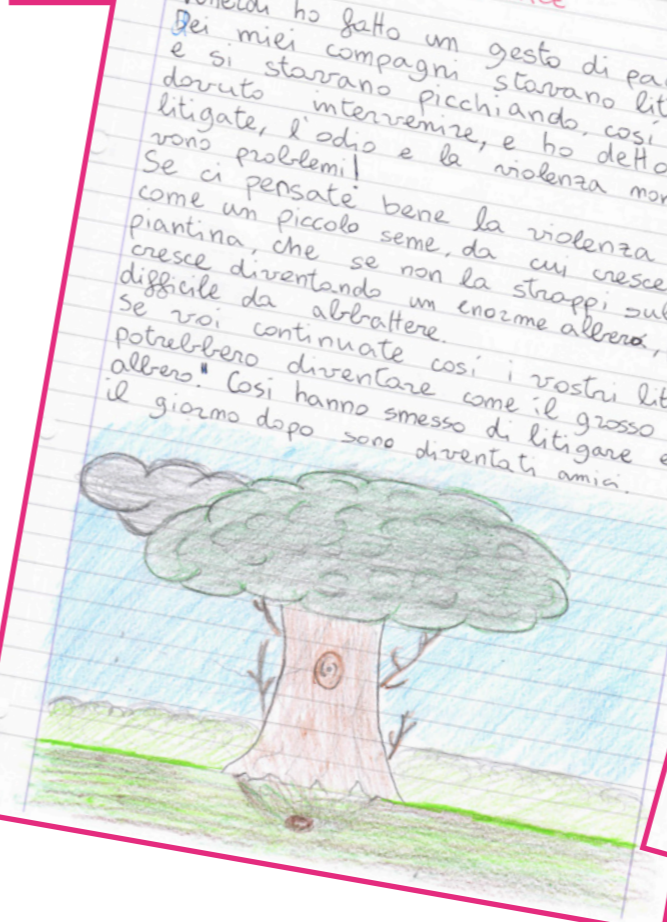 ho fatto un gesto di
Dei miei compagni stavano
e si stavano picchiando, così
dovuto intervenire, e ho detto
litigate, l'odio e la violenza
vono problemi!
Se ci pensate bene la violenza
come un piccolo seme, da cui cresce
piantina, che se non la strappi
cresce diventando un enorme albero,
difficile da abbattere.
se voi continuate così i vostri
potrebbero diventare come il grosso
albero." Così hanno smesso di litigare e
il giorno dopo sono diventati amici.